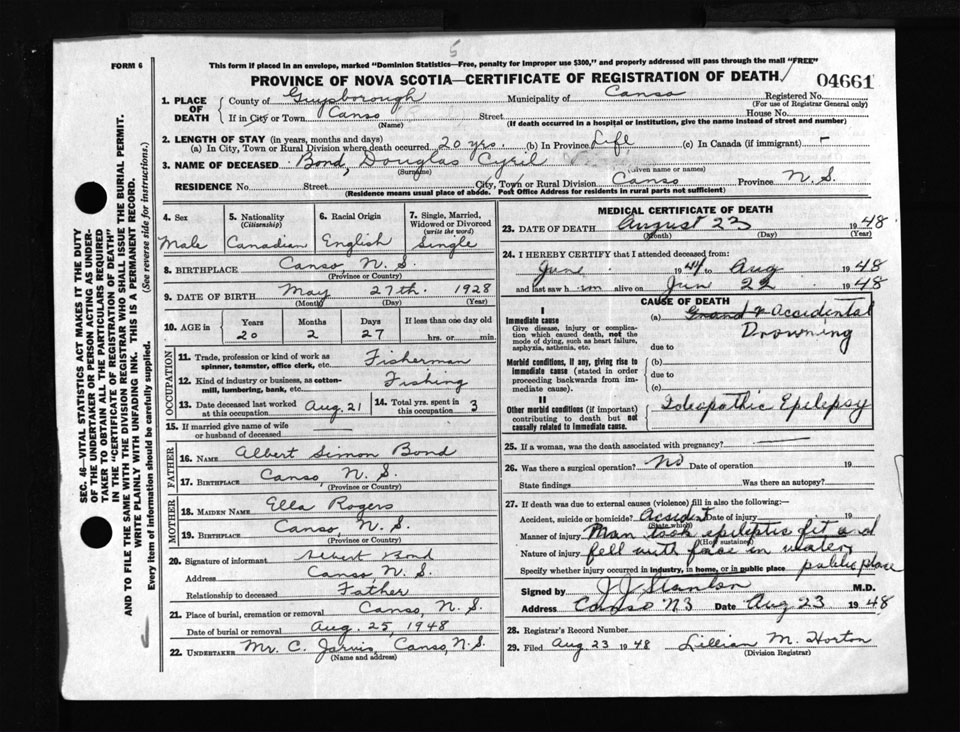 5
FORM 6
This form if placed in an envelope, marked "Dominion Statistics—Free, penalty for improper use $300," and properly addressed will pass through the mail "FREE"
PROVINCE OF NOVA SCOTIA—CERTIFICATE OF REGISTRATION OF DEATH
04661
SEC. 46—VITAL STATISTICS ACT MAKES IT THE DUTY
OF THE UNDERTAKER OR PERSON ACTING AS UNDER-
TAKER TO OBTAIN ALL THE PARTICULARS REQUIRED
IN THE "CERTIFICATE OF REGISTRATION OF DEATH"
AND TO FILE THE SAME WITH THE DIVISION REGISTRAR WHO SHALL ISSUE THE BURIAL PERMIT.
WRITE PLAINLY WITH UNFADING INK. THIS IS A PERMANENT RECORD.
Every item of information should be carefully supplied. (See reverse side for instructions.)
1. PLACE OF DEATH
County of Guysborough Municipality of Canso Registered No.
(For use of Registrar General only)
If in City or Town Canso Street House No.
(Name) (If death occurred in a hospital or institution, give the name instead of street and number)
2. LENGTH OF STAY (in years, months and days)
(a) In City, Town or Rural Division where death occurred 20 yrs. (b) In Province Life (c) In Canada (if immigrant) -
3. NAME OF DECEASED Bond, Douglas Cyril
(Surname) (Given name or names)
RESIDENCE No. Street City, Town or Rural Division Canso Province N.S.
(Residence means usual place of abode. Post Office Address for residents in rural parts not sufficient)
4. Sex
Male
5. Nationality
(Citizenship)
Canadian
6. Racial Origin
English
7. Single, Married,
Widowed or Divorced
(write the word)
Single
8. BIRTHPLACE Canso, N.S.
(Province or Country)
9. DATE OF BIRTH May 27th. 1928
(Month) (Day) (Year)
10. AGE in Years Months Days If less than one day old
20 2 27 hrs. or min.
OCCUPATION
11. Trade, profession or kind of work as
spinner, teamster, office clerk, etc. Fisherman
12. Kind of industry or business, as cotton-
mill, lumbering, bank, etc. Fishing
13. Date deceased last worked
at this occupation Aug. 21
14. Total yrs. spent in
this occupation 3
15. If married give name of wife
or husband of deceased
FATHER
16. NAME Albert Simon Bond
17. BIRTHPLACE Canso, N.S.
(Province or Country)
MOTHER
18. MAIDEN NAME Ella Rogers
19. BIRTHPLACE Canso, N.S.
(Province or Country)
20. Signature of informant Albert Bond
Address Canso, N.S.
Relationship to deceased Father
21. Place of burial, cremation or removal Canso, N.S.
Date of burial or removal Aug. 25, 1948
22. UNDERTAKER Mr. C. Jarvis, Canso, N.S.
(Name and address)
MEDICAL CERTIFICATE OF DEATH
23. DATE OF DEATH August 23 1948
(Month) (Day) (Year)
24. I HEREBY CERTIFY that I attended deceased from:
June 1944 to Aug 1948
and last saw him alive on Jun 22 1948
CAUSE OF DEATH
I
Immediate cause
Give disease, injury or complica-
tion which caused death, not the
mode of dying, such as heart failure,
asphyxia, asthenia, etc.
(a) Accidental
Drowning
due to
Morbid conditions, if any, giving rise to
immediate cause (stated in order
proceeding backwards from im-
mediate cause).
(b)
due to
(c)
II
Other morbid conditions (if important)
contributing to death but not
causally related to immediate cause.
Ideopathic Epilepsy
25. If a woman, was the death associated with pregnancy?
26. Was there a surgical operation? No Date of operation 19
State findings Was there an autopsy?
27. If death was due to external causes (violence) fill in also the following:—
Accident, suicide or homicide? Accident Date of injury 19
(State which)
Manner of injury Man took epileptic fit and
(How sustained)
Nature of injury fell with face in water
Specify whether injury occurred in industry, in home, or in public place public place
Signed by J J Stanton M.D.
Address Canso NS Date Aug 23 1948
28. Registrar's Record Number
29. Filed Aug 23 1948 Lillian M. Horton
(Division Registrar)